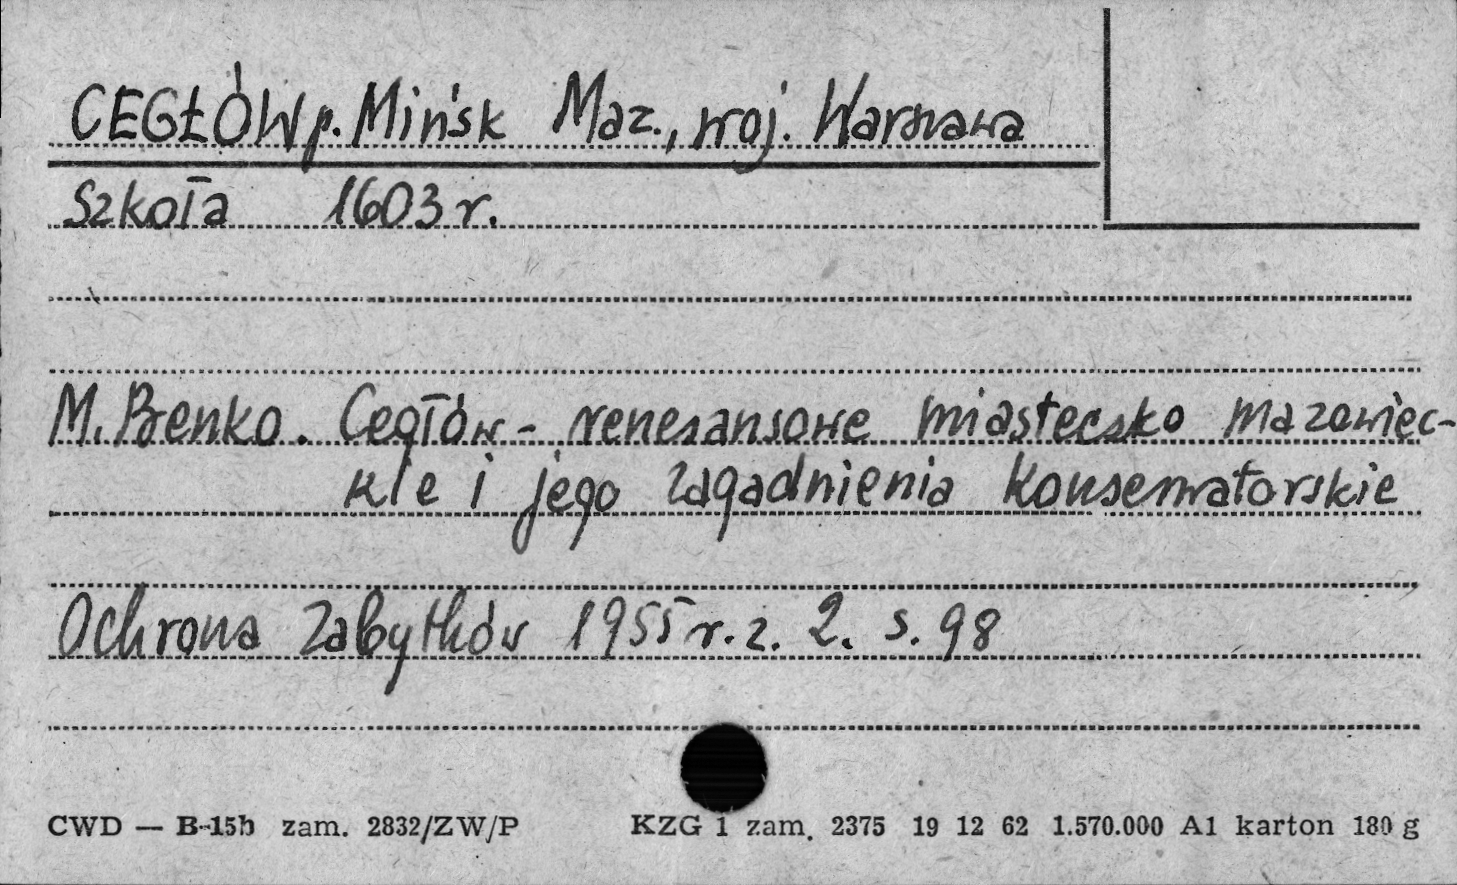 CEGŁÓW p. Mińsk Maz., woj. Warszawa
Szkoła 1603 r.
M. Benko. Cegłów - renesansowe miasteczko mazowiec-
kie i jego zagadnienia konserwatorskie
Ochrona Zabytków 1955 r. z. 2. s. 98
CWD — B-15b zam. 2832/ZW/P KZG 1 zam. 2375 19 12 62 1.570.000 A1 karton 180 g